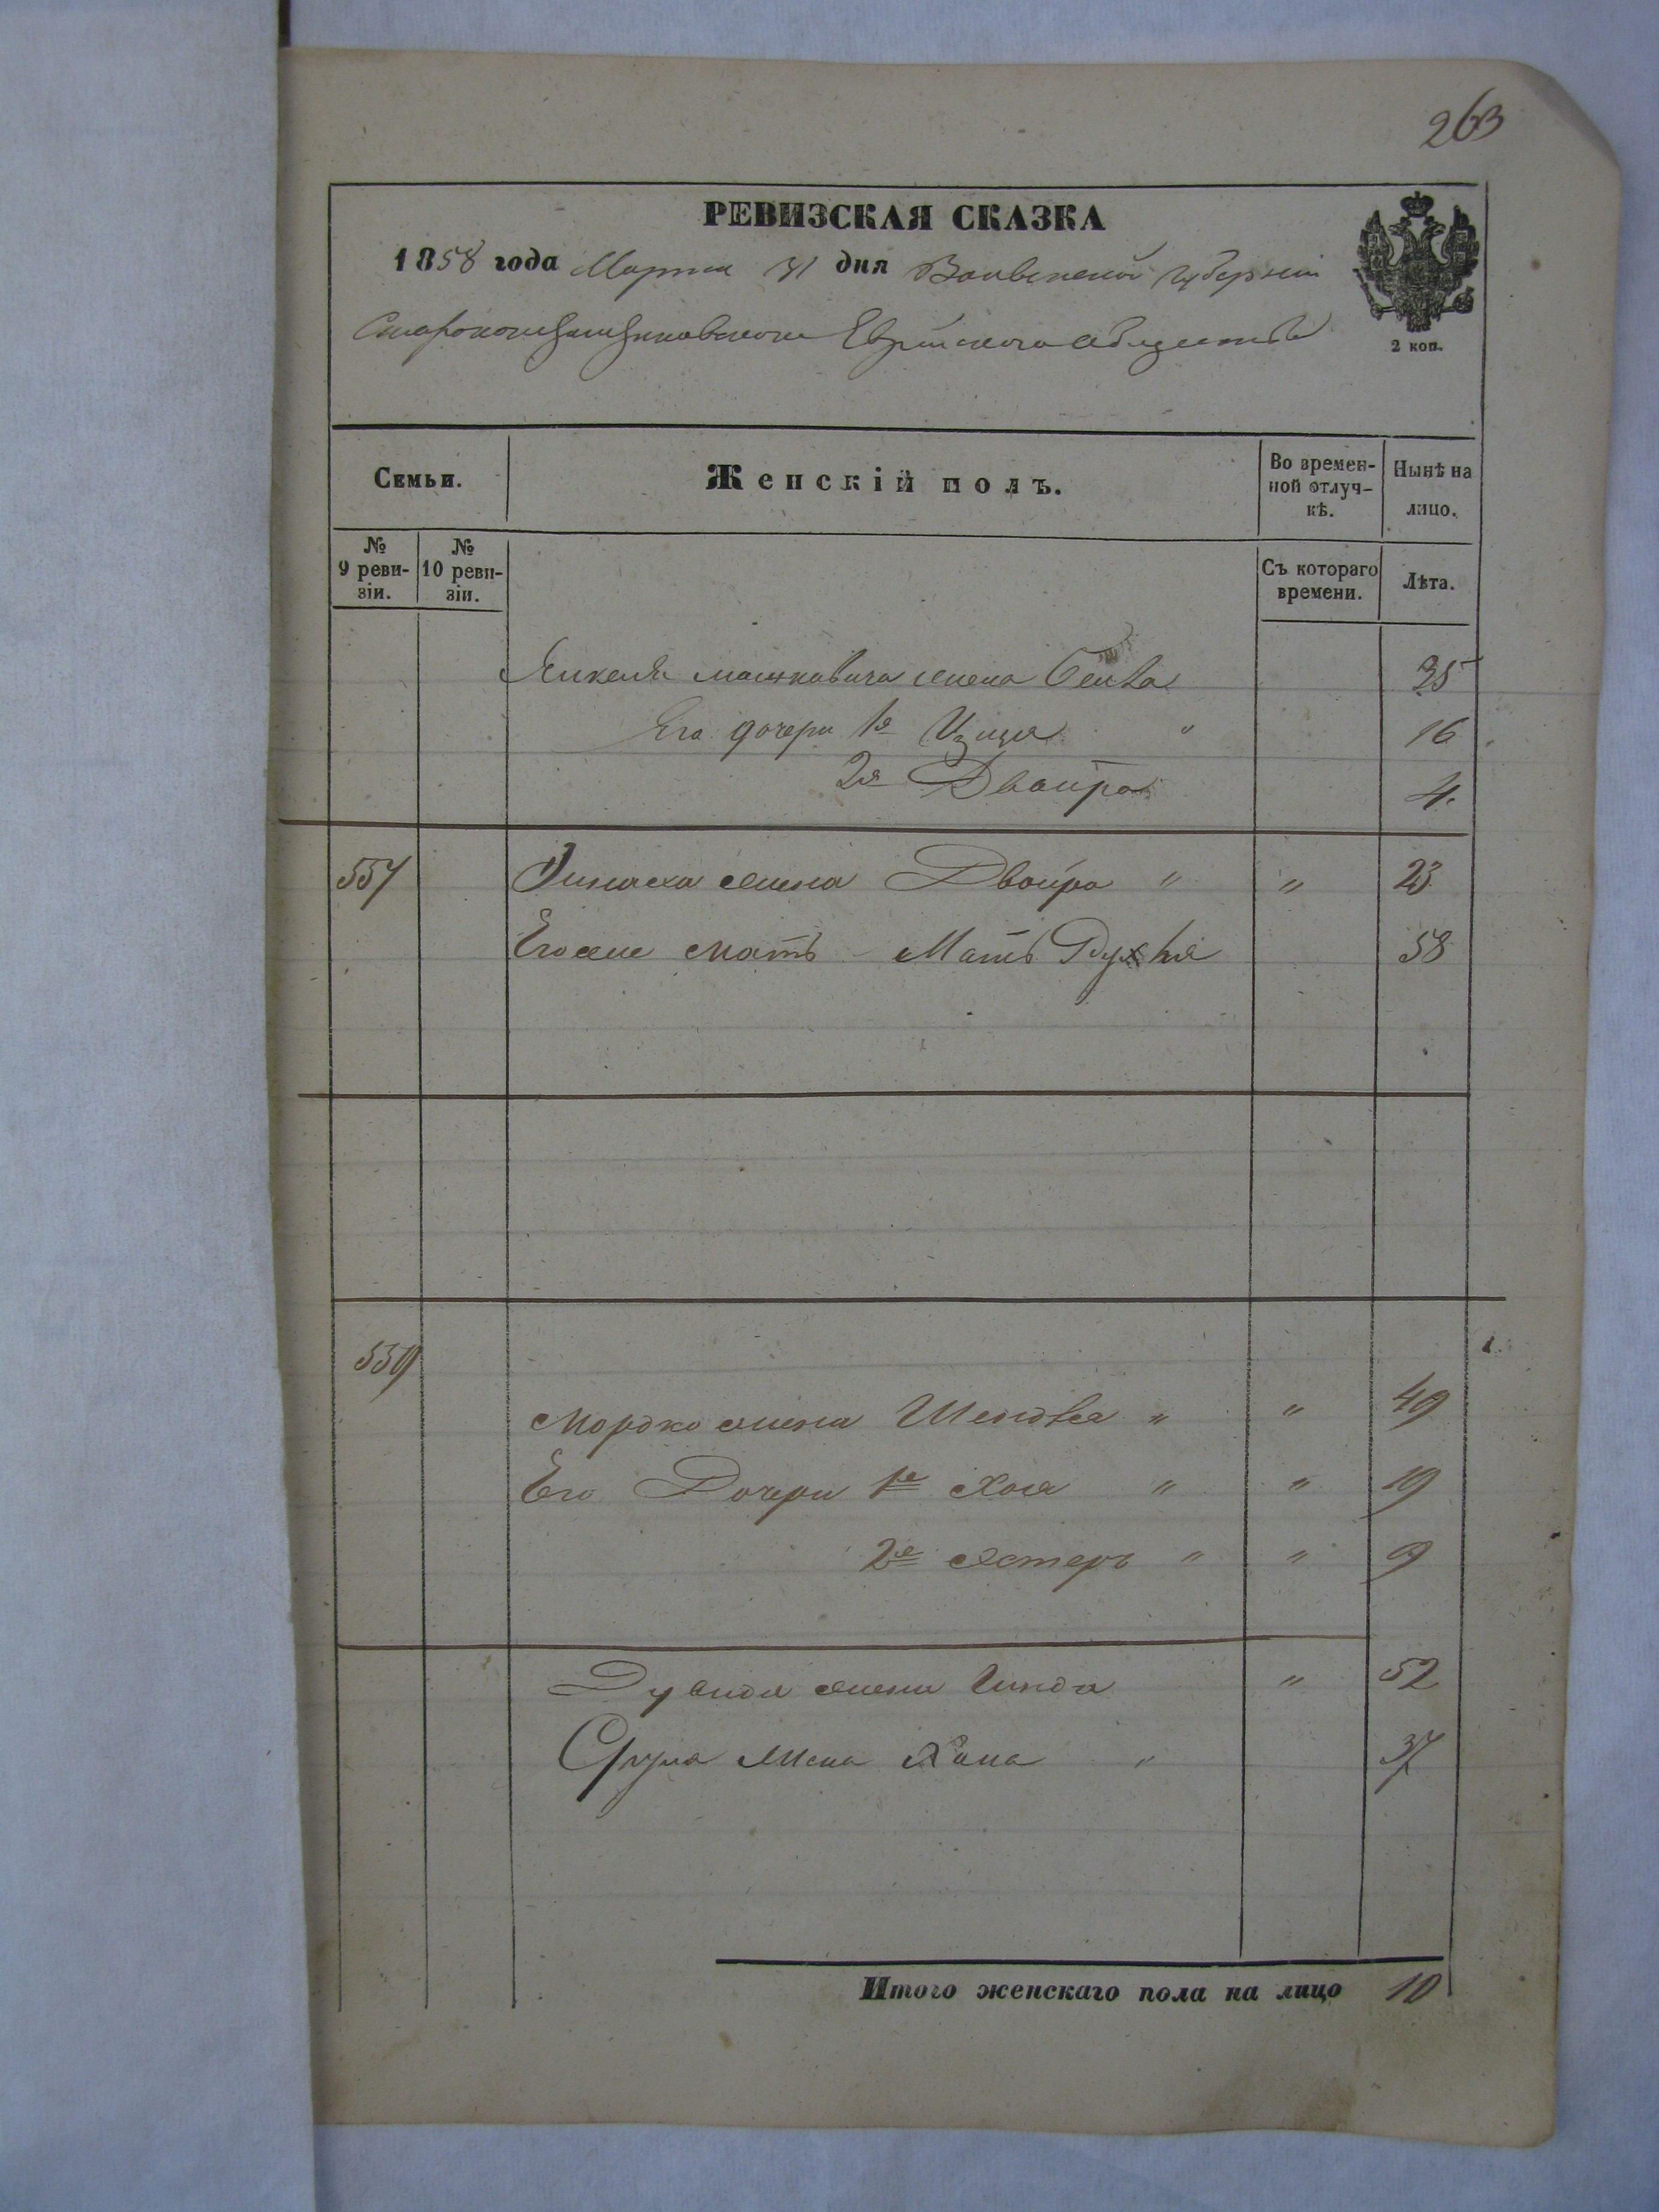 263
РЕВИЗСКАЯ СКАЗКА
1858 года Марта 31 дня Волынской губернии
Староконстантиновского Еврейского общества
2 коп.
Семьи. Женскій полъ. Во времен- Нынѣ на
ной отлуч- лицо.
кѣ.
№ № 
9 реви- 10 реви- Съ котораго Лѣта.
зіи. зіи. времени.
Янкеля жена 35
Его дочери 1я 〃 16
2я Двойра 4.
557 Пинхаса жена Двойра 〃 〃 23
Его же мать Мать 58
559
Мордко жена 〃 〃 49
Его Дочери 1я Хая 〃 〃 19
2я Эстеръ 〃 〃 9
Дувида жена Гинда 〃 52
Срула жена Хана 〃 37
Итого женскаго пола на лицо 10